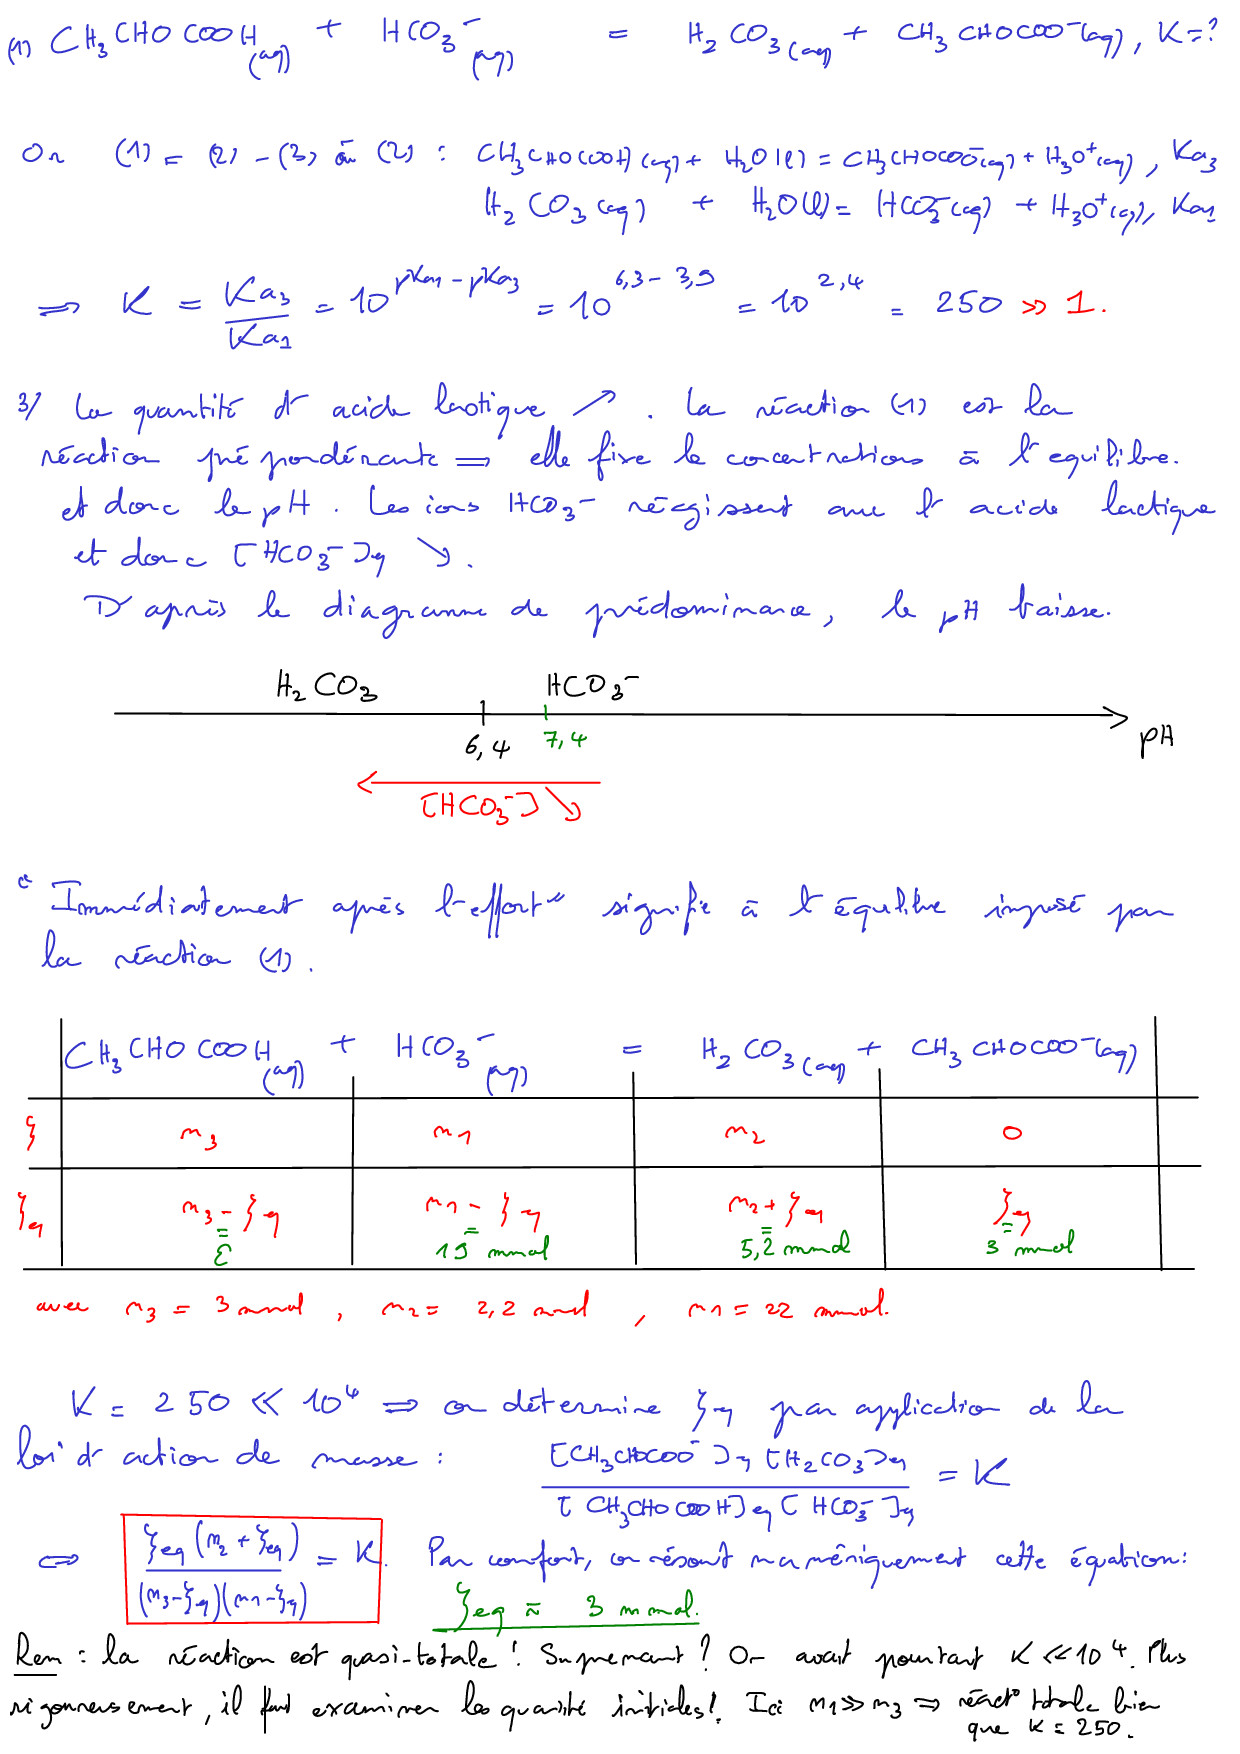 (1) CH₃CHOCOOH(aq) + HCO₃⁻(aq) = H₂CO₃(aq) + CH₃CHOCOO⁻(aq), K=?
Or (1) = (2) - (3) où (2) : CH₃CHOCOOH(aq) + H₂O(l) = CH₃CHOCOO⁻(aq) + H₃O⁺(aq), Ka₃
H₂CO₃(aq) + H₂O(l) = HCO₃⁻(aq) + H₃O⁺(aq), Ka₁
⟹ K = Ka₃/Ka₁ = 10^(pKa₁ - pKa₃) = 10^(6,3 - 3,9) = 10^(2,4) = 250 ≫ 1.
3/ La quantité d'acide lactique ↗. La réaction (1) est la
réaction prépondérante ⟹ elle fixe le concentrations à l'equilibre.
et donc le pH. Les ions HCO₃⁻ réagissent avec l'acide lactique
et donc [HCO₃⁻]eq ↘.
D'après le diagramme de prédominance, le pH baisse.
H₂CO₃ HCO₃⁻
6,4 7,4 pH
[HCO₃⁻] ↘
"Immédiatement après l'effort" signifie à l'équilibre imposé par
la réaction (1).
CH₃CHOCOOH(aq) + HCO₃⁻(aq) = H₂CO₃(aq) + CH₃CHOCOO⁻(aq)
ξ n₃ n₁ n₂ 0
ξeq n₃ - ξeq n₁ - ξeq n₂ + ξeq ξeq
= ε = 19 mmol = 5,2 mmol = 3 mmol
avec n₃ = 3 mmol, n₂ = 2,2 mmol, n₁ = 22 mmol.
K = 250 ≪ 10⁴ ⟹ on détermine ξeq par application de la
loi d'action de masse : [CH₃CHOCOO⁻]eq [H₂CO₃]eq / [CH₃CHOCOOH]eq [HCO₃⁻]eq = K
⟺ ξeq (n₂ + ξeq) / (n₃ - ξeq)(n₁ - ξeq) = K. Par confort, on résout numériquement cette équation:
ξeq ≈ 3 mmol.
Rem : la réaction est quasi-totale ! Surprenant ? On avait pourtant K ≪ 10⁴. Plus
rigoureusement, il faut examiner les quantité initiales!. Ici n₁ ≫ n₃ ⟹ réact° totale bien
que K = 250.